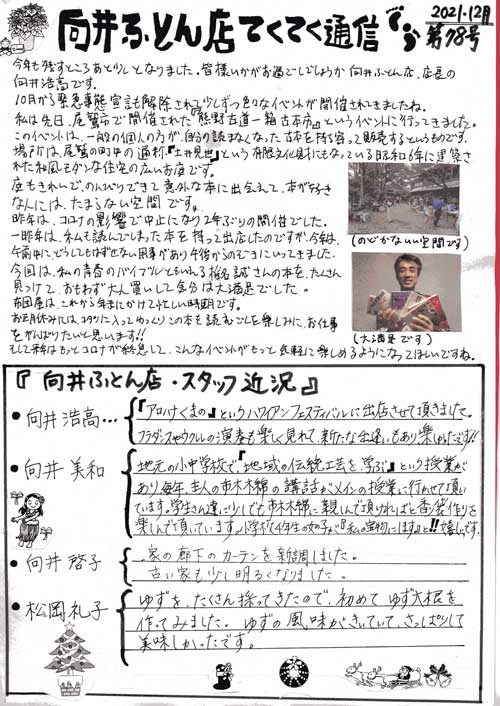 向井ふとん店てくてく通信
2021.12月
第78号
今年も残すところあと少しとなりました。皆様いかがお過ごしでしょうか 向井ふとん店、店長の
向井浩高です。
10月から緊急事態宣言も解除され少しずつ色々なイベントが開催されてきましたね。
私は先日、尾鷲市で開催された『熊野古道一箱古本市』というイベントに行ってきました。
このイベントは、一般の個人の方が、自分の読まなくなった古本を持ち寄って販売するというものです。
場所は、尾鷲の町中の通称『土井見世』という有形文化財にもなっている昭和6年に建築さ
れた和風モダンな住宅の広いお庭です。
庭もきれいで、のんびりできて意外な本に出会えて、本が好き
な人には、たまらない空間です。
昨年は、コロナの影響で中止になり2年ぶりの開催でした。
一昨年は、私も読んでしまった本を持って出店したのですが、今年は、
午前中、どうしてもはずせない用事があり午後からのぞきにいってきました。
今回は、私の青春のバイブルともいえる椎名誠さんの本を、たくさん
見つけて、おもわず大人買いして自分は大満足でした。
布団屋は、これから年末にかけて忙しい時期です。
お正月休みには、コタツに入ってゆっくりこの本を読むことを楽しみに、お仕事
をがんばりたいと思います!!
そして来年はもっとコロナが終息して、こんなイベントがもっと気軽に楽しめるようになってほしいですね。
(のどかないい空間です)
(大満足です)
『向井ふとん店・スタッフ近況』
• 向井浩高…
『アロハけくまの』というハワイアンフェスティバルに出店させて頂きました。
フラダンスやウクレレの演奏も楽しく見れて、新たな出逢いもあり楽しかったです!!
• 向井 美和
地元の小中学校で『地域の伝統工芸を学ぶ』という授業が
あり毎年、主人の市木木綿の講話がメインの授業に行かせて頂い
ています。学生さん達に少しでも市木木綿に親しんで頂ければと香袋作りを
楽しんで頂いています。小学校4年生の女の子が『私の宝物にします』と!!嬉しいです。
• 向井 啓子
家の廊下のカーテンを新調しました。
古い家も少し明るくなりました。
• 松岡 礼子
ゆずを、たくさん採ってきたので、初めて ゆず大根を
作ってみました。ゆずの風味がきいていて、さっぱりして
美味しかったです。